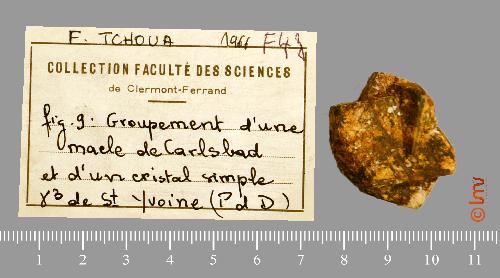 F. TCHOUA 1966 F43
COLLECTION FACULTÉ DES SCIENCES
de Clermont-Ferrand
fig. 9: Groupement d'une
macle de Carlsbad
et d'un cristal simple
γ3 de St Yvoine (P d D)
1 2 3 4 5 6 7 8 9 10 11